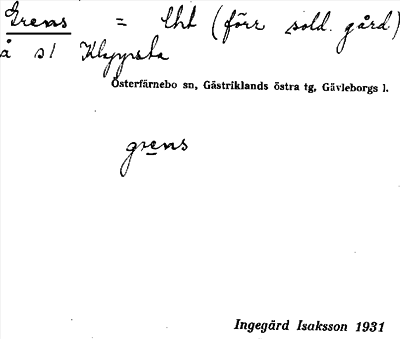 Grens = lht (förr sold. gård)
å sl Klappsta
Österfärnebo sn, Gästriklands östra tg, Gävleborgs l.
grens
Ingegärd Isaksson 1931